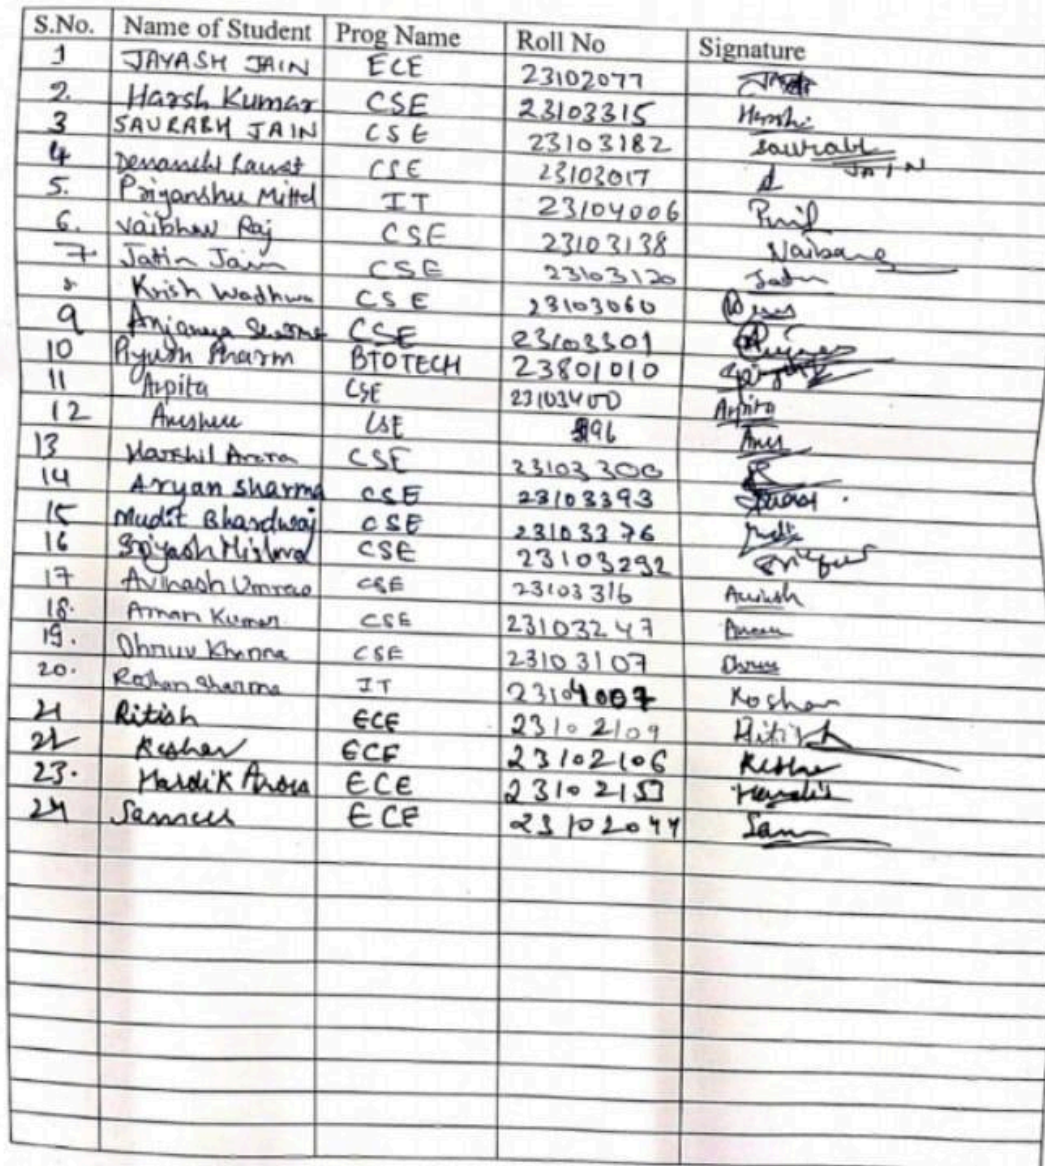 S.No. Name of Student Prog Name Roll No Signature
1 JAYASH JAIN ECE 23102077
2. Harsh Kumar CSE 23103315 Harsh
3 SAURABH JAIN CSE 23103182 Saurabh JAIN
4 CSE 23103017
5. Priyanshu Mittal IT 23104006
6. Vaibhav Raj CSE 23103138
7 Jatin Jain CSE 23103120 Jatin
8. Krish Wadhwa CSE 23103060
9 CSE 23103301
10 Piyush Sharm BIOTECH 23801010
11 Arpita CSE 23103400 Arpita
12 CSE 96
13 Harshil Arora CSE 23103300
14 Aryan Sharma CSE 23103393
15 Mudit Bhardwaj CSE 23103376
16 Sriyash Mishra CSE 23103292
17 Avinash Umrao CSE 23103316 Avinash
18. Aman Kumar CSE 23103247 Aman
19. Dhruv Khanna CSE 23103107 Dhruv
20. Roshan Sharma IT 23104007 Roshan
21 Ritish ECE 23102109 Ritish
22 Keshav ECE 23102106
23. Hardik Arora ECE 23102153 Hardik
24 ECE 23102044 Sam